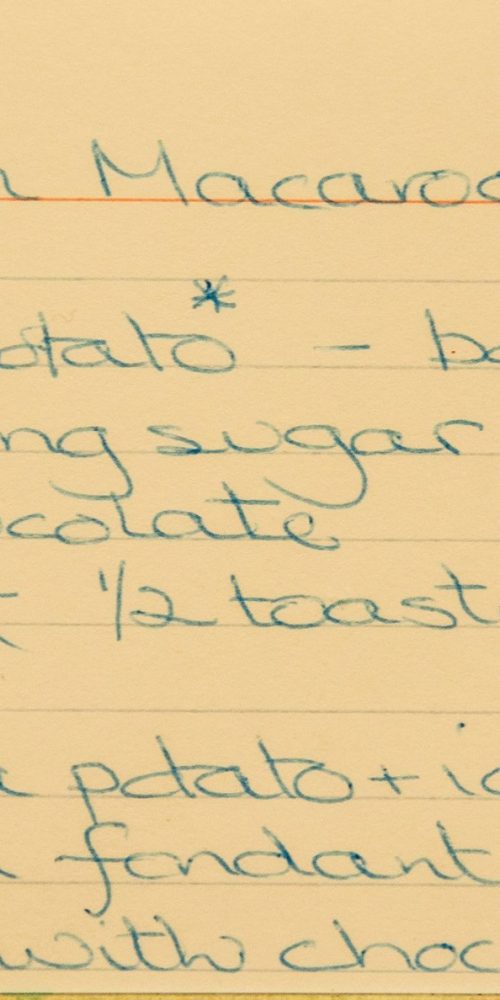 Macaroo
otato* - bo
ng sugar
colate
1/2 toast
potato + ic
fondant
with choc